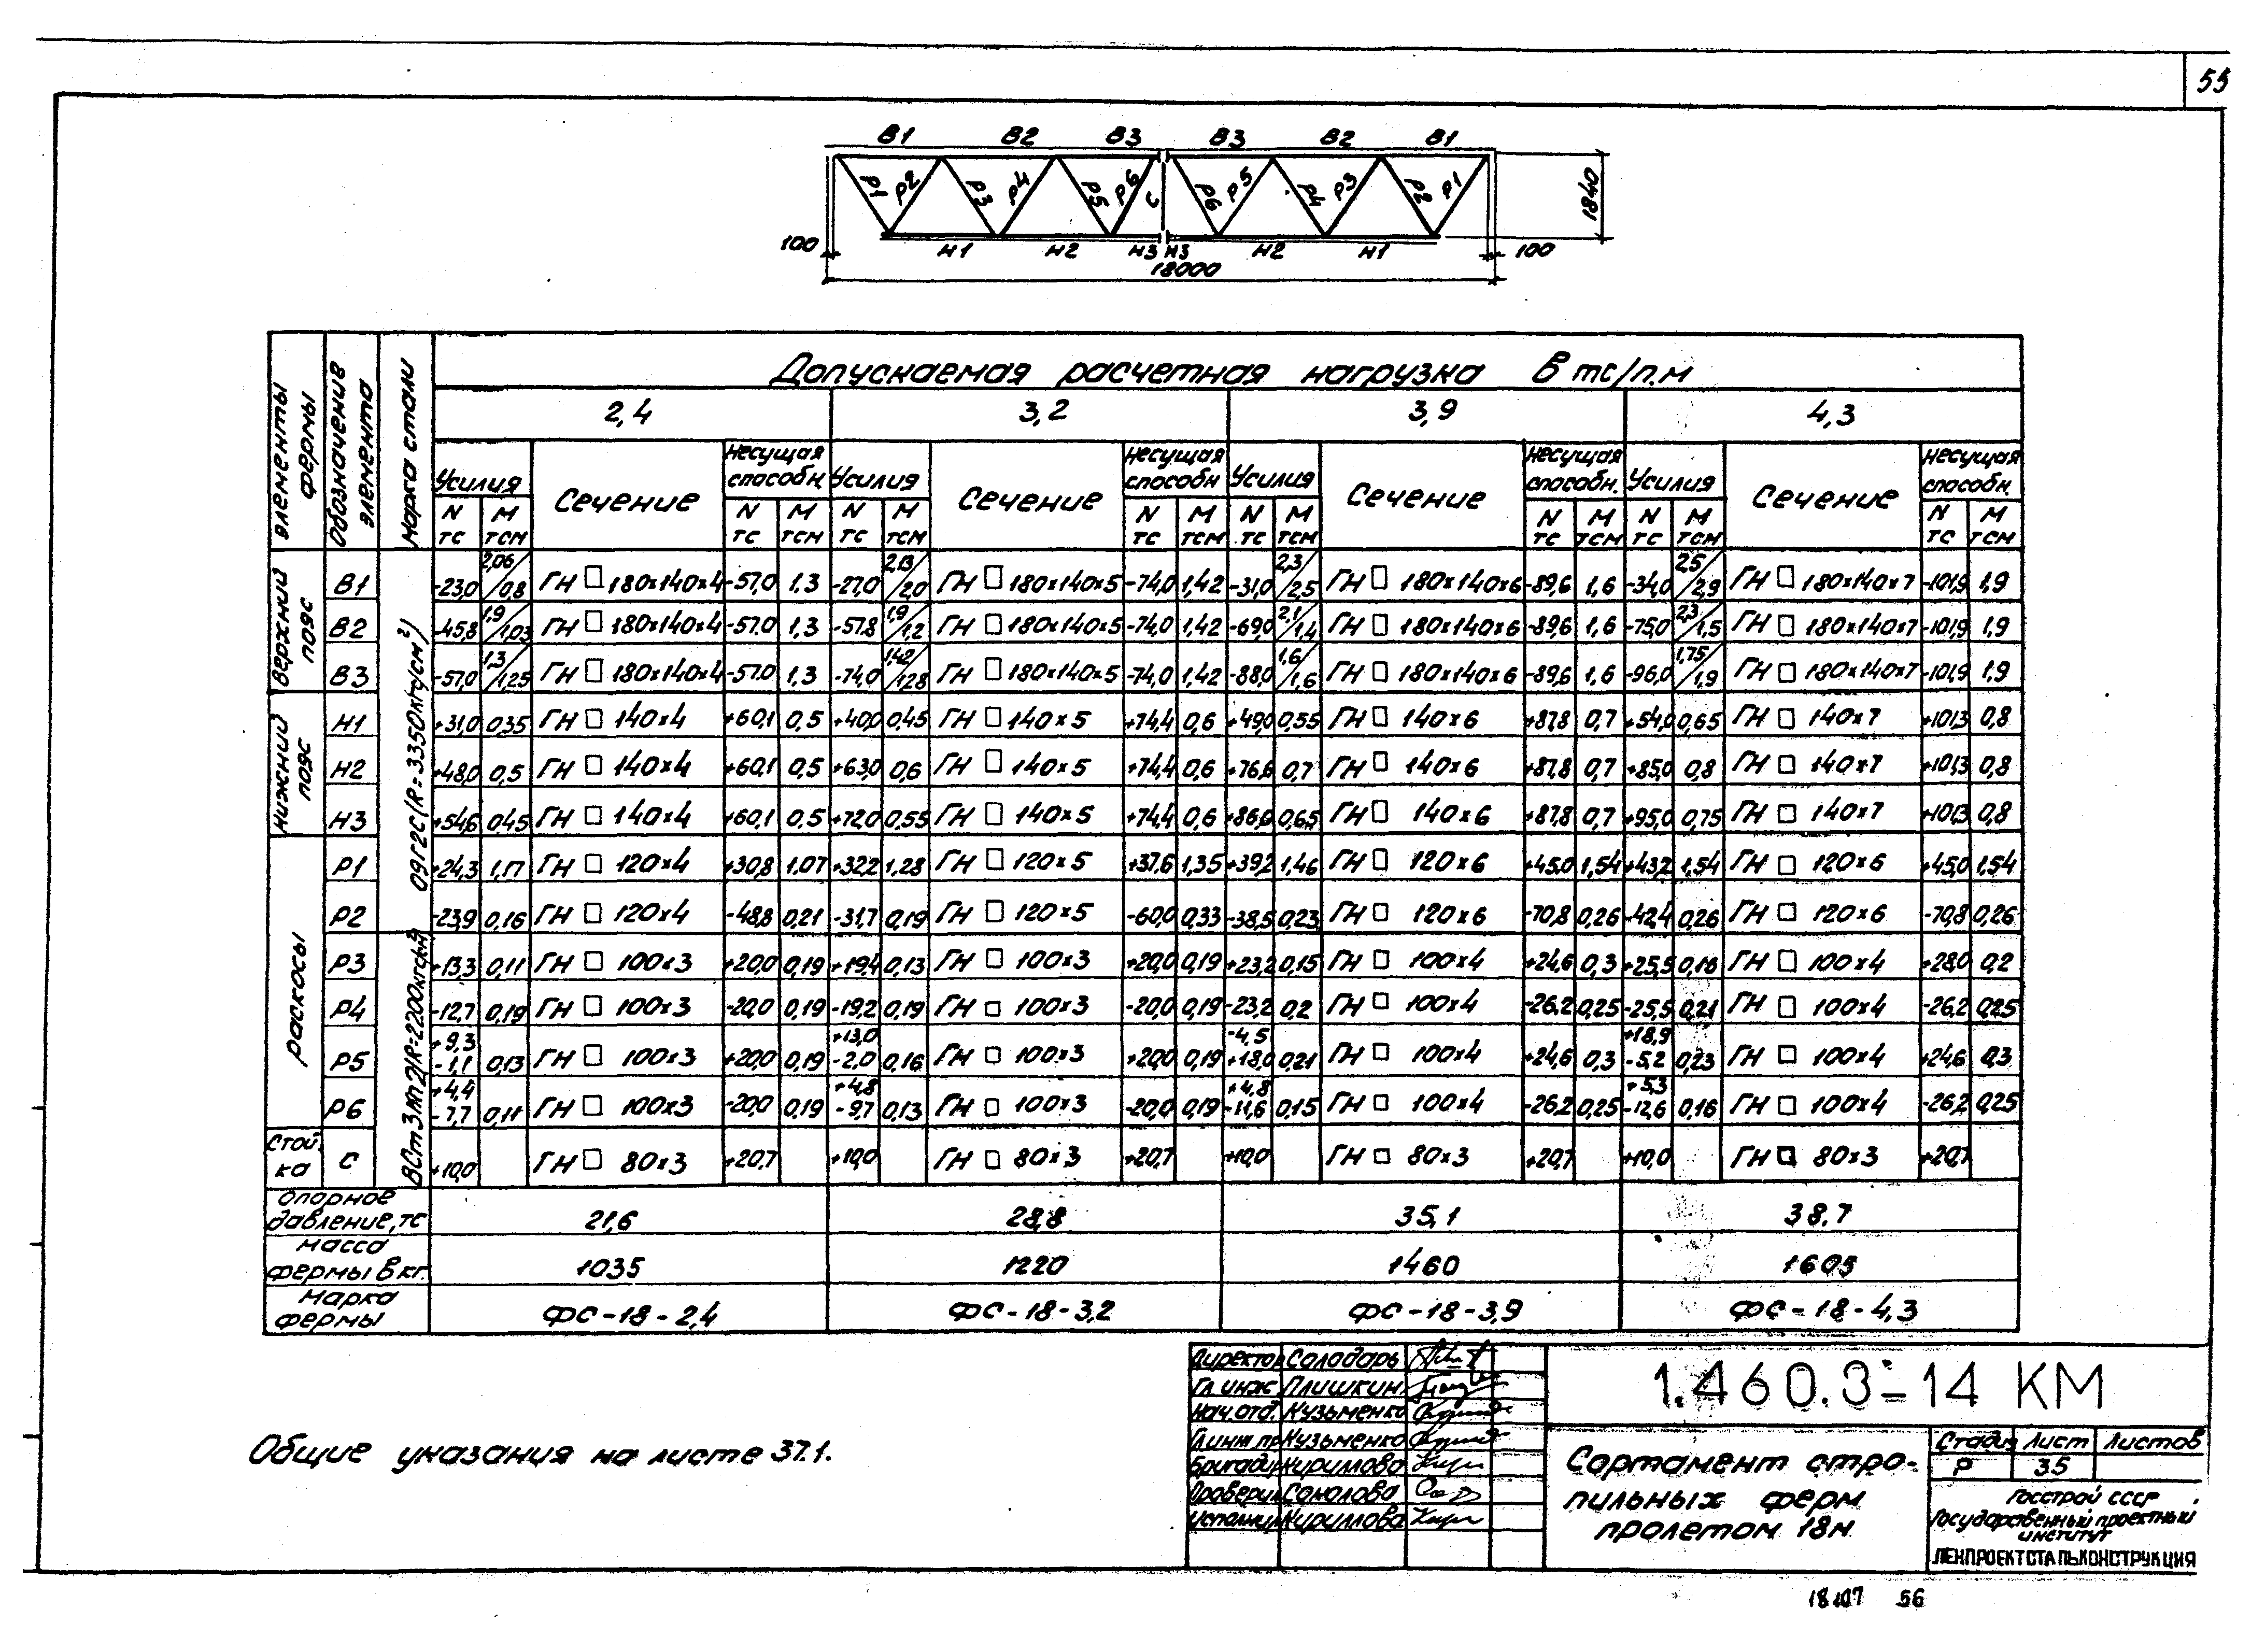 55
В1 В2 В3 В3 В2 В1
Р1 Р2 Р3 Р4 Р5 Р6 С Р6 Р5 Р4 Р3 Р2 Р1
1840
100 Н1 Н2 Н3 Н3 Н2 Н1 100
18000
Элементы фермы
Обозначение элемента
Марка стали
Допускаемая расчетная нагрузка в тс/п.м
2,4 3,2 3,9 4,3
Усилия Сечение Несущая способн. Усилия Сечение Несущая способн. Усилия Сечение Несущая способн. Усилия Сечение Несущая способн.
N тс М тсм N тс М тсм N тс М тсм N тс М тсм N тс М тсм N тс М тсм N тс М тсм N тс М тсм
Верхний пояс
09Г2С (R=3350кг/см²)
В1 -23,0 2,06/0,8 ГН □ 180х140х4 -57,0 1,3 -27,0 2,13/2,0 ГН □ 180х140х5 -74,0 1,42 -31,0 2,3/2,5 ГН □ 180х140х6 -89,6 1,6 -34,0 2,5/2,9 ГН □ 180х140х7 -101,9 1,9
В2 -45,8 1,9/1,03 ГН □ 180х140х4 -57,0 1,3 -57,8 1,9/1,2 ГН □ 180х140х5 -74,0 1,42 -69,0 2,1/1,4 ГН □ 180х140х6 -89,6 1,6 -75,0 2,3/1,5 ГН □ 180х140х7 -101,9 1,9
В3 -57,0 1,3/1,25 ГН □ 180х140х4 -57,0 1,3 -74,0 1,42/1,28 ГН □ 180х140х5 -74,0 1,42 -88,0 1,6/1,6 ГН □ 180х140х6 -89,6 1,6 -96,0 1,75/1,9 ГН □ 180х140х7 -101,9 1,9
Нижний пояс
Н1 +31,0 0,35 ГН □ 140х4 +60,1 0,5 +40,0 0,45 ГН □ 140х5 +74,4 0,6 +49,0 0,55 ГН □ 140х6 +87,8 0,7 +54,0 0,65 ГН □ 140х7 +101,3 0,8
Н2 +48,0 0,5 ГН □ 140х4 +60,1 0,5 +63,0 0,6 ГН □ 140х5 +74,4 0,6 +76,6 0,7 ГН □ 140х6 +87,8 0,7 +85,0 0,8 ГН □ 140х7 +101,3 0,8
Н3 +54,6 0,45 ГН □ 140х4 +60,1 0,5 +72,0 0,55 ГН □ 140х5 +74,4 0,6 +86,0 0,65 ГН □ 140х6 +87,8 0,7 +95,0 0,75 ГН □ 140х7 +101,3 0,8
Раскосы
Р1 +24,3 1,17 ГН □ 120х4 +30,8 1.07 +32,2 1,28 ГН □ 120х5 +37,6 1,35 +39,2 1,46 ГН □ 120х6 +45,0 1,54 +43,2 1,54 ГН □ 120х6 +45,0 1,54
Р2 -23,9 0,16 ГН □ 120х4 -48,8 0,21 -31,7 0,19 ГН □ 120х5 -60,0 0,33 -38,5 0,23 ГН □ 120х6 -70,8 0,26 -42,4 0,26 ГН □ 120х6 -70,8 0,26
Р3 +13,3 0,11 ГН □ 100х3 +20,0 0,19 +19,4 0,13 ГН □ 100х3 +20,0 0,19 +23,2 0,15 ГН □ 100х4 +24,6 0,3 +25,5 0,16 ГН □ 100х4 +28,0 0,2
Р4 -12,7 0,19 ГН □ 100х3 -20,0 0,19 -19,2 0,19 ГН □ 100х3 -20,0 0,19 -23,2 0,2 ГН □ 100х4 -26,2 0,25 -25,5 0,21 ГН □ 100х4 -26,2 0,25
Р5 +9,3 -1,1 0,13 ГН □ 100х3 +20,0 0,19 +13,0 -2,0 0,16 ГН □ 100х3 +20,0 0,19 -4,5 +18,0 0,21 ГН □ 100х4 +24,6 0,3 +18,9 -5,2 0,23 ГН □ 100х4 +24,6 0,3
Р6 +4,4 -7,7 0,11 ГН □ 100х3 -20,0 0,19 +4,8 -9,7 0,13 ГН □ 100х3 -20,0 0,19 +4,8 -11,6 0,15 ГН □ 100х4 -26,2 0,25 +5,3 -12,6 0,16 ГН □ 100х4 -26,2 0,25
Стойка С +10,0 ГН □ 80х3 +20,7 +10,0 ГН □ 80х3 +20,7 +10,0 ГН □ 80х3 +20,7 +10,0 ГН □ 80х3 +20,7
Опорное давление, тс 21,6 28,8 35,1 38,7
Масса фермы в кг. 1035 1220 1460 1605
Марка фермы ФС-18-2,4 ФС-18-3,2 ФС-18-3,9 ФС-18-4,3
Общие указания на листе 37.1.
Директор Солодарь
Гл.инж. Плишкин
Нач.отд. Кузьменко
Гл.инж.пр Кузьменко
Бригадир Кириллова
Проверил Соколова
Исполнил Кириллова
1.460.3-14 КМ
Сортамент стро-
пильных ферм
пролетом 18м
Стадия Лист Листов
Р 35
Госстрой СССР
Государственный проектный
институт
ЛЕНПРОЕКТСТАЛЬКОНСТРУКЦИЯ
18107 56